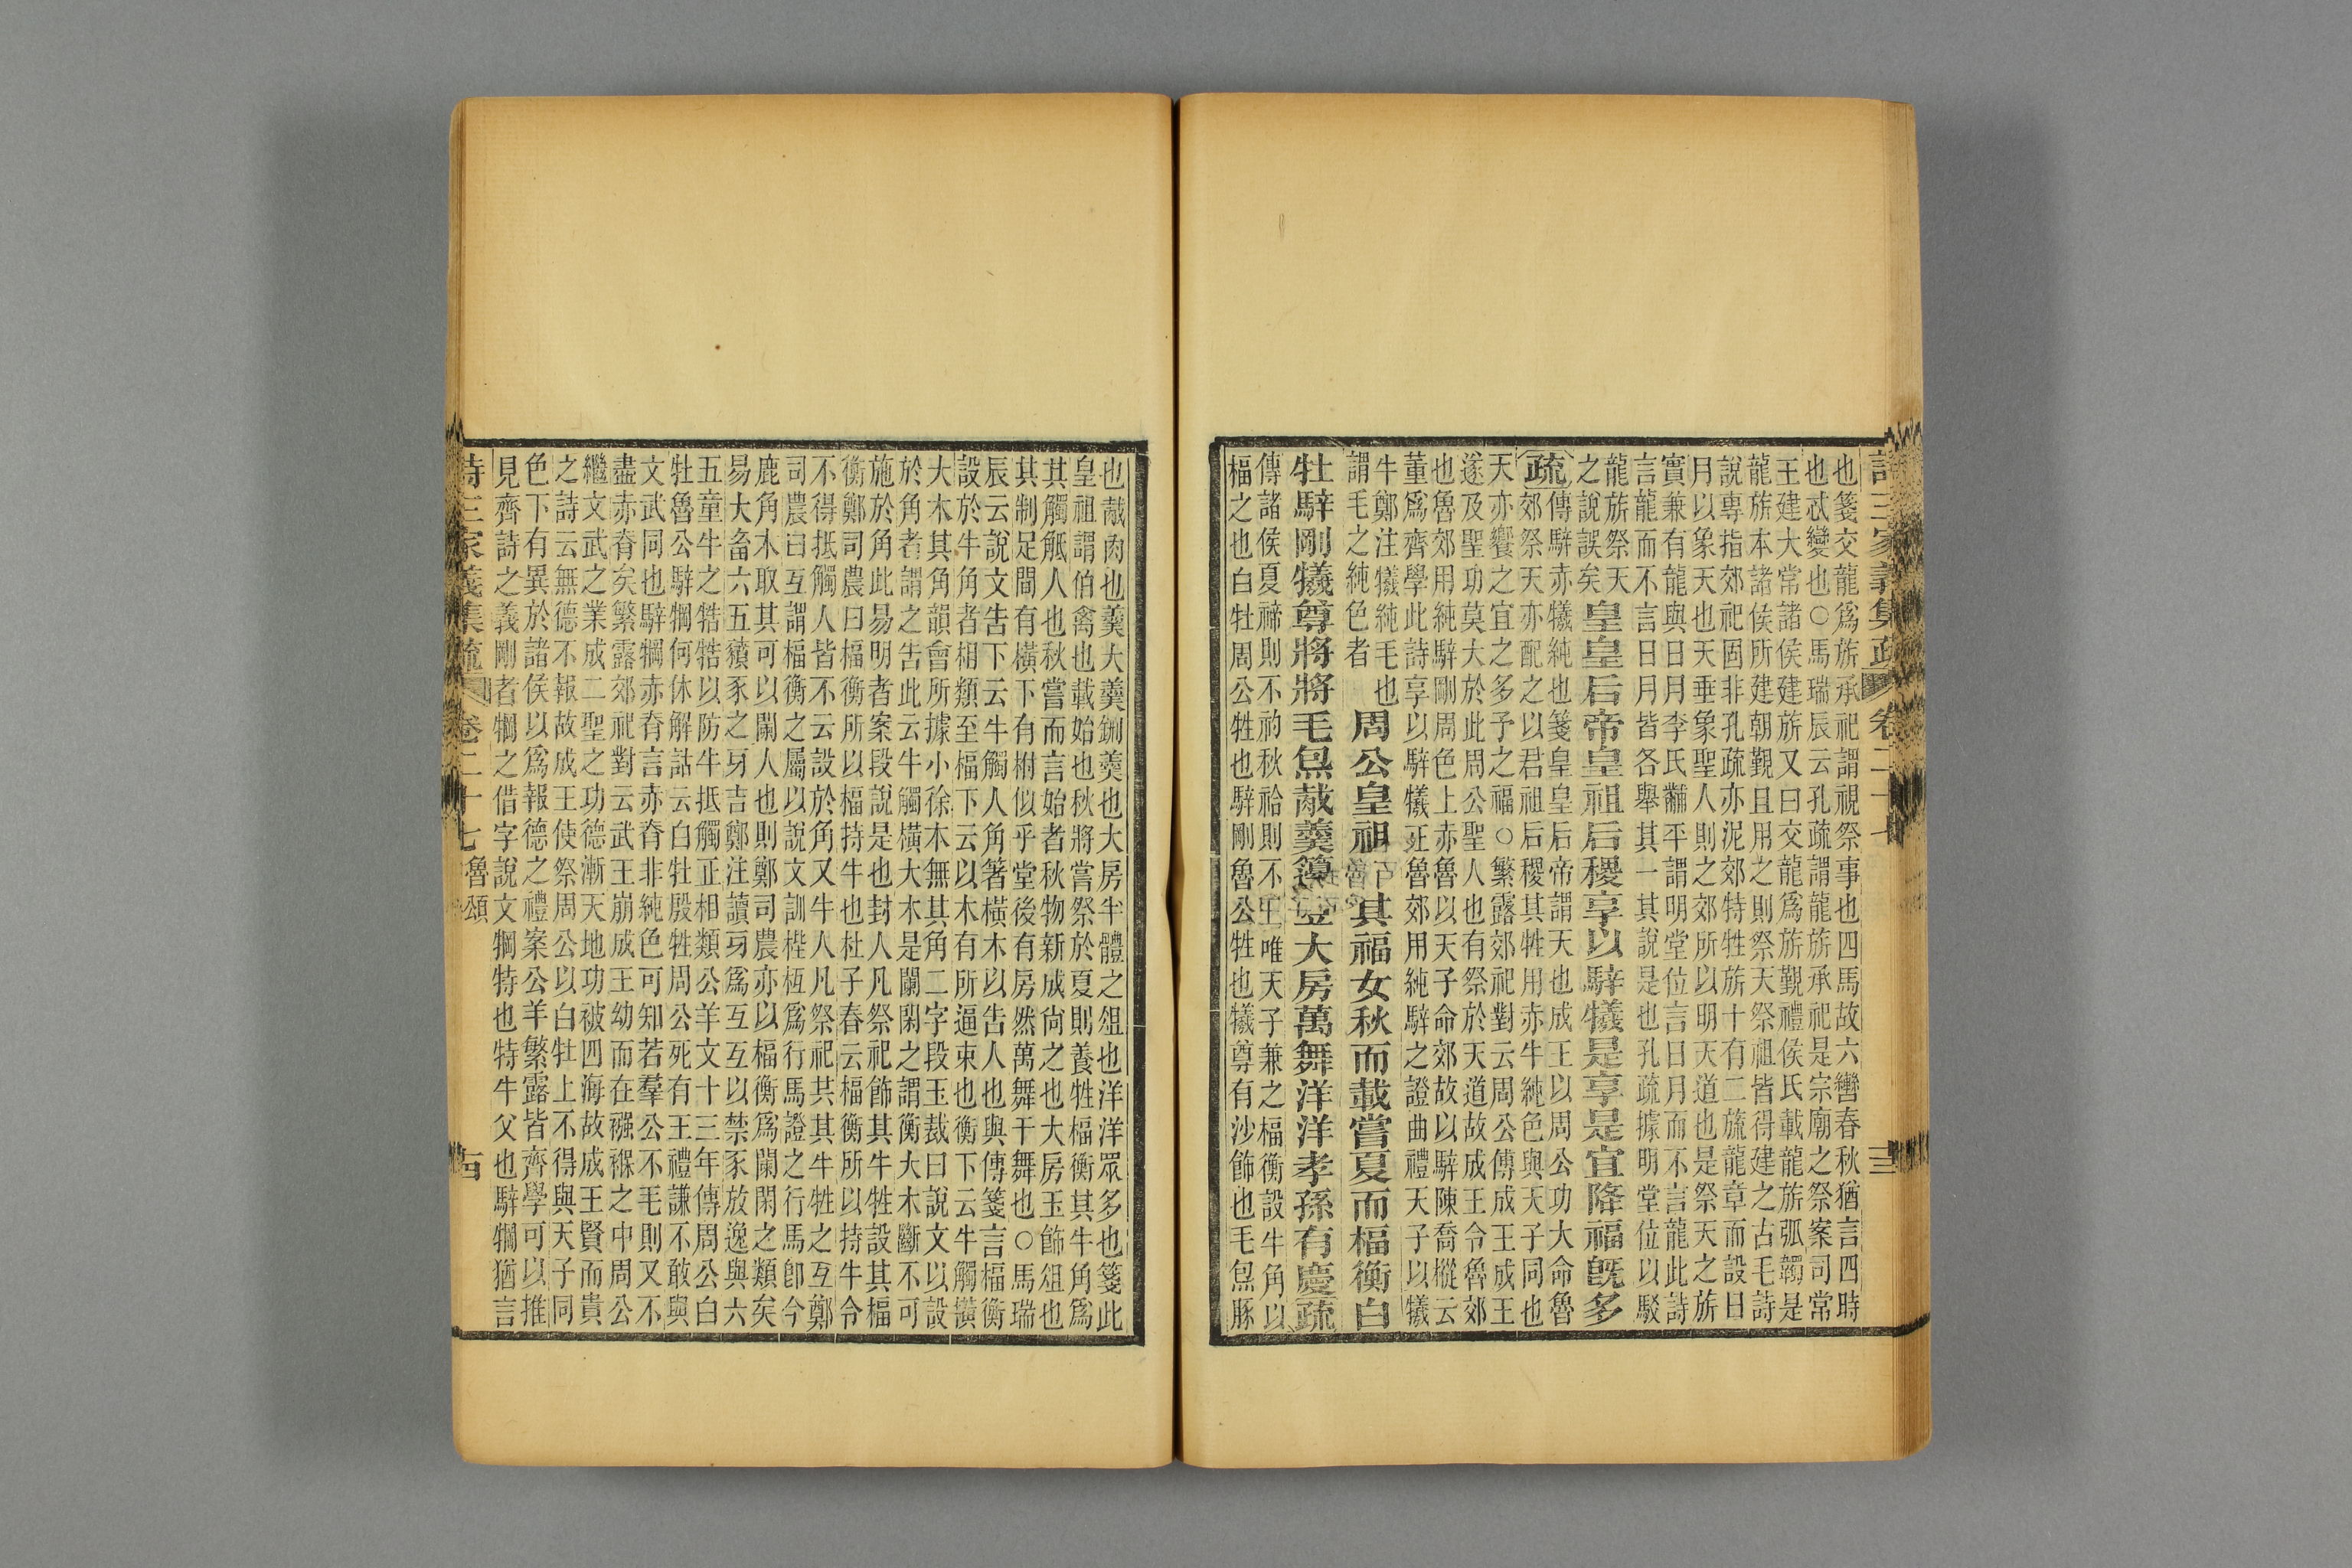 詩三家義集疏 卷二十七 十三
也箋交龍爲旂承祀謂視祭事也四馬故六轡春秋猶言四時
也忒變也○馬瑞辰云孔疏謂龍旂承祀是宗廟之祭案司常
王建大常諸侯建旂又曰交龍爲旂覲禮侯氏載龍旂弧韣是
龍旂本諸侯所建朝覲且用之則祭天祭祖皆得建之古毛詩
說專指郊祀固非孔疏亦泥郊特牲旂十有二旒龍章而設日
月以象天也天垂象聖人則之郊所以明天道也是祭天之旂
實兼有龍與日月李氏黼平謂明堂位言日月而不言龍此詩
言龍而不言日月皆各舉其一其說是也孔疏據明堂位以駁
龍旂祭天
之說誤矣
皇皇后帝皇祖后稷享以騂犧是享是宜降福既多
疏
傳騂赤犧純也箋皇皇后帝謂天也成王以周公功大命魯
郊祭天亦配之以君祖后稷其牲用赤牛純色與天子同也
天亦饗之宜之多予之福○繁露郊祀對云周公傅成王成王
遂及聖功莫大於此周公聖人也有祭於天道故成王令魯郊
也魯郊用純騂剛周色上赤魯以天子命郊故以騂陳喬樅云
董爲齊學此詩享以騂犧魯郊用純騂之證曲禮天子以犧
牛鄭注犧純毛也
謂毛之純色者
周公皇祖其福女秋而載嘗夏而楅衡白
牡騂剛犧尊將將毛炰胾羹籩豆大房萬舞洋洋孝孫有慶疏
傳諸侯夏禘則不礿秋祫則不唯天子兼之楅衡設牛角以
楅之也白牡周公牲也騂剛魯公牲也犧尊有沙飾也毛炰豚
也胾肉也羹大羹鉶羹也大房半體之俎也洋洋眾多也箋此
皇祖謂伯禽也載始也秋將嘗祭於夏則養牲楅衡其牛角爲
其觸觝人也秋嘗而言始者秋物新成尙之也大房玉飾俎也
其制足間有橫下有柎似乎堂後有房然萬舞干舞也○馬瑞
辰云說文告下云牛觸人角箸橫木以告人也與傳箋言楅衡
設於牛角者相類至楅下云以木有所逼束也衡下云牛觸橫
大木其角韻會所據小徐木無其角二字段玉裁曰說文以設
於角者謂之告此云牛觸橫大木是闌閑之謂衡大木斷不可
施於角此易明者案段說是也封人凡祭祀飾其牛牲設其楅
衡鄭司農曰楅衡所以楅持牛也杜子春云楅衡所以持牛令
不得抵觸人皆不云設於角又牛人凡祭祀共其牛牲之互鄭
司農曰互謂楅衡之屬以說文訓梐枑爲行馬證之行馬卽今
鹿角木取其可以闌人也則鄭司農亦以楅衡爲闌閑之類矣
易大畜六五豶豕之牙吉鄭注讀牙爲互互以禁豕放逸與六
五童牛之牿牿以防牛抵觸正相類公羊文十三年傳周公白
牡魯公騂犅何休解詁云白牡殷牲周公死有王禮謙不敢與
文武同也騂犅赤脊言赤脊非純色可知若羣公不毛則又不
盡赤脊矣繁露郊祀對云武王崩成王幼而在襁褓之中周公
繼文武之業成二聖之功德漸天地功被四海故成王賢而貴
之詩云無德不報故成王使祭周公以白牡上不得與天子同
色下有異於諸侯以爲報德之禮案公羊繁露皆齊學可以推
見齊詩之義剛者犅之借字說文犅特也特牛父也騂犅猶言
詩三家義集疏 卷二十七 魯頌 十四